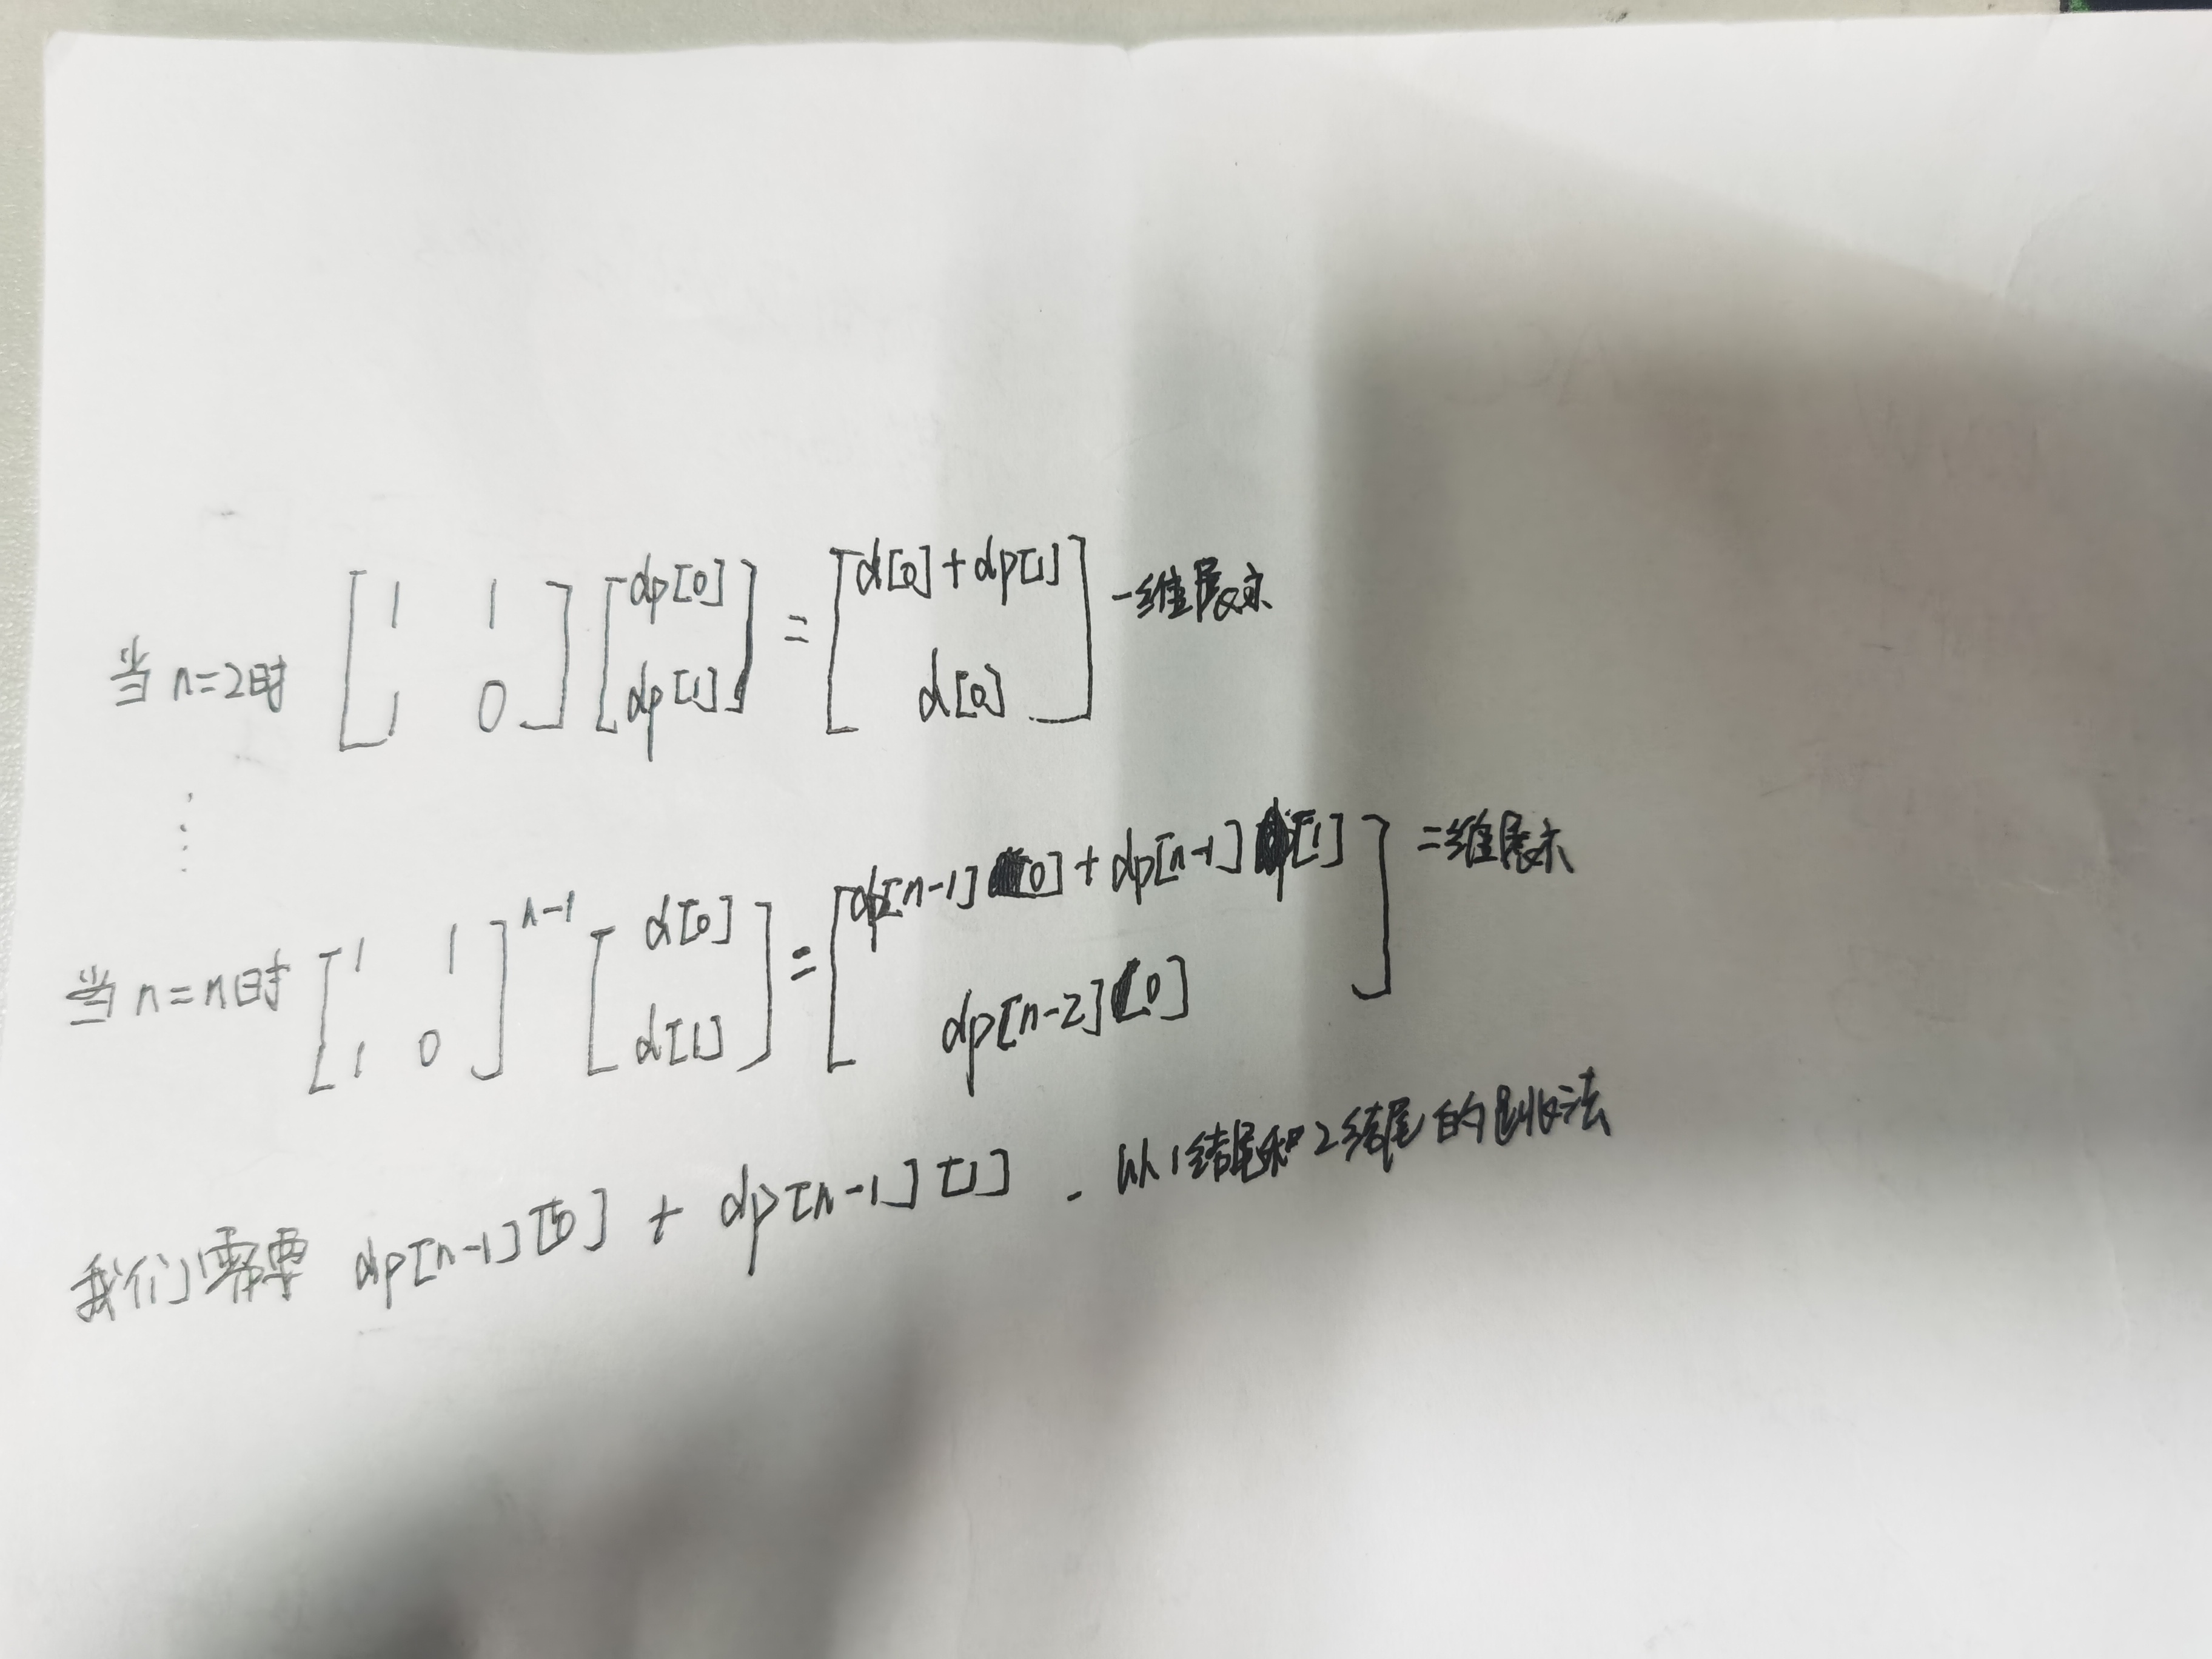 当 n=2时 [1 1 1 0] [dp[0] dp[1]] = [d[0]+dp[1] d[0]] 一维展示
⋮
当 n=n时 [1 1 1 0]^{n-1} [d[0] d[1]] = [dp[n-1][0]+dp[n-1][1] dp[n-2][0]] 二维展示
我们需要 dp[n-1][0] + dp[n-1][1] . 以1结尾和2结尾的